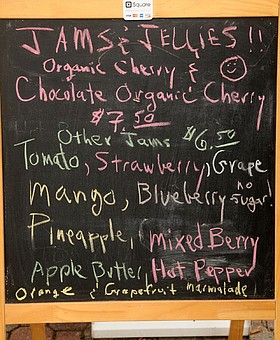 Square
JAMS & JELLIES!!
Organic Cherry &
Chocolate Organic Cherry
$7.50
Other Jams $6.50
Tomato, Strawberry, Grape
Mango, Blueberry no sugar!
Pineapple, Mixed Berry
Apple Butter, Hot Pepper
Orange & Grapefruit marmalade